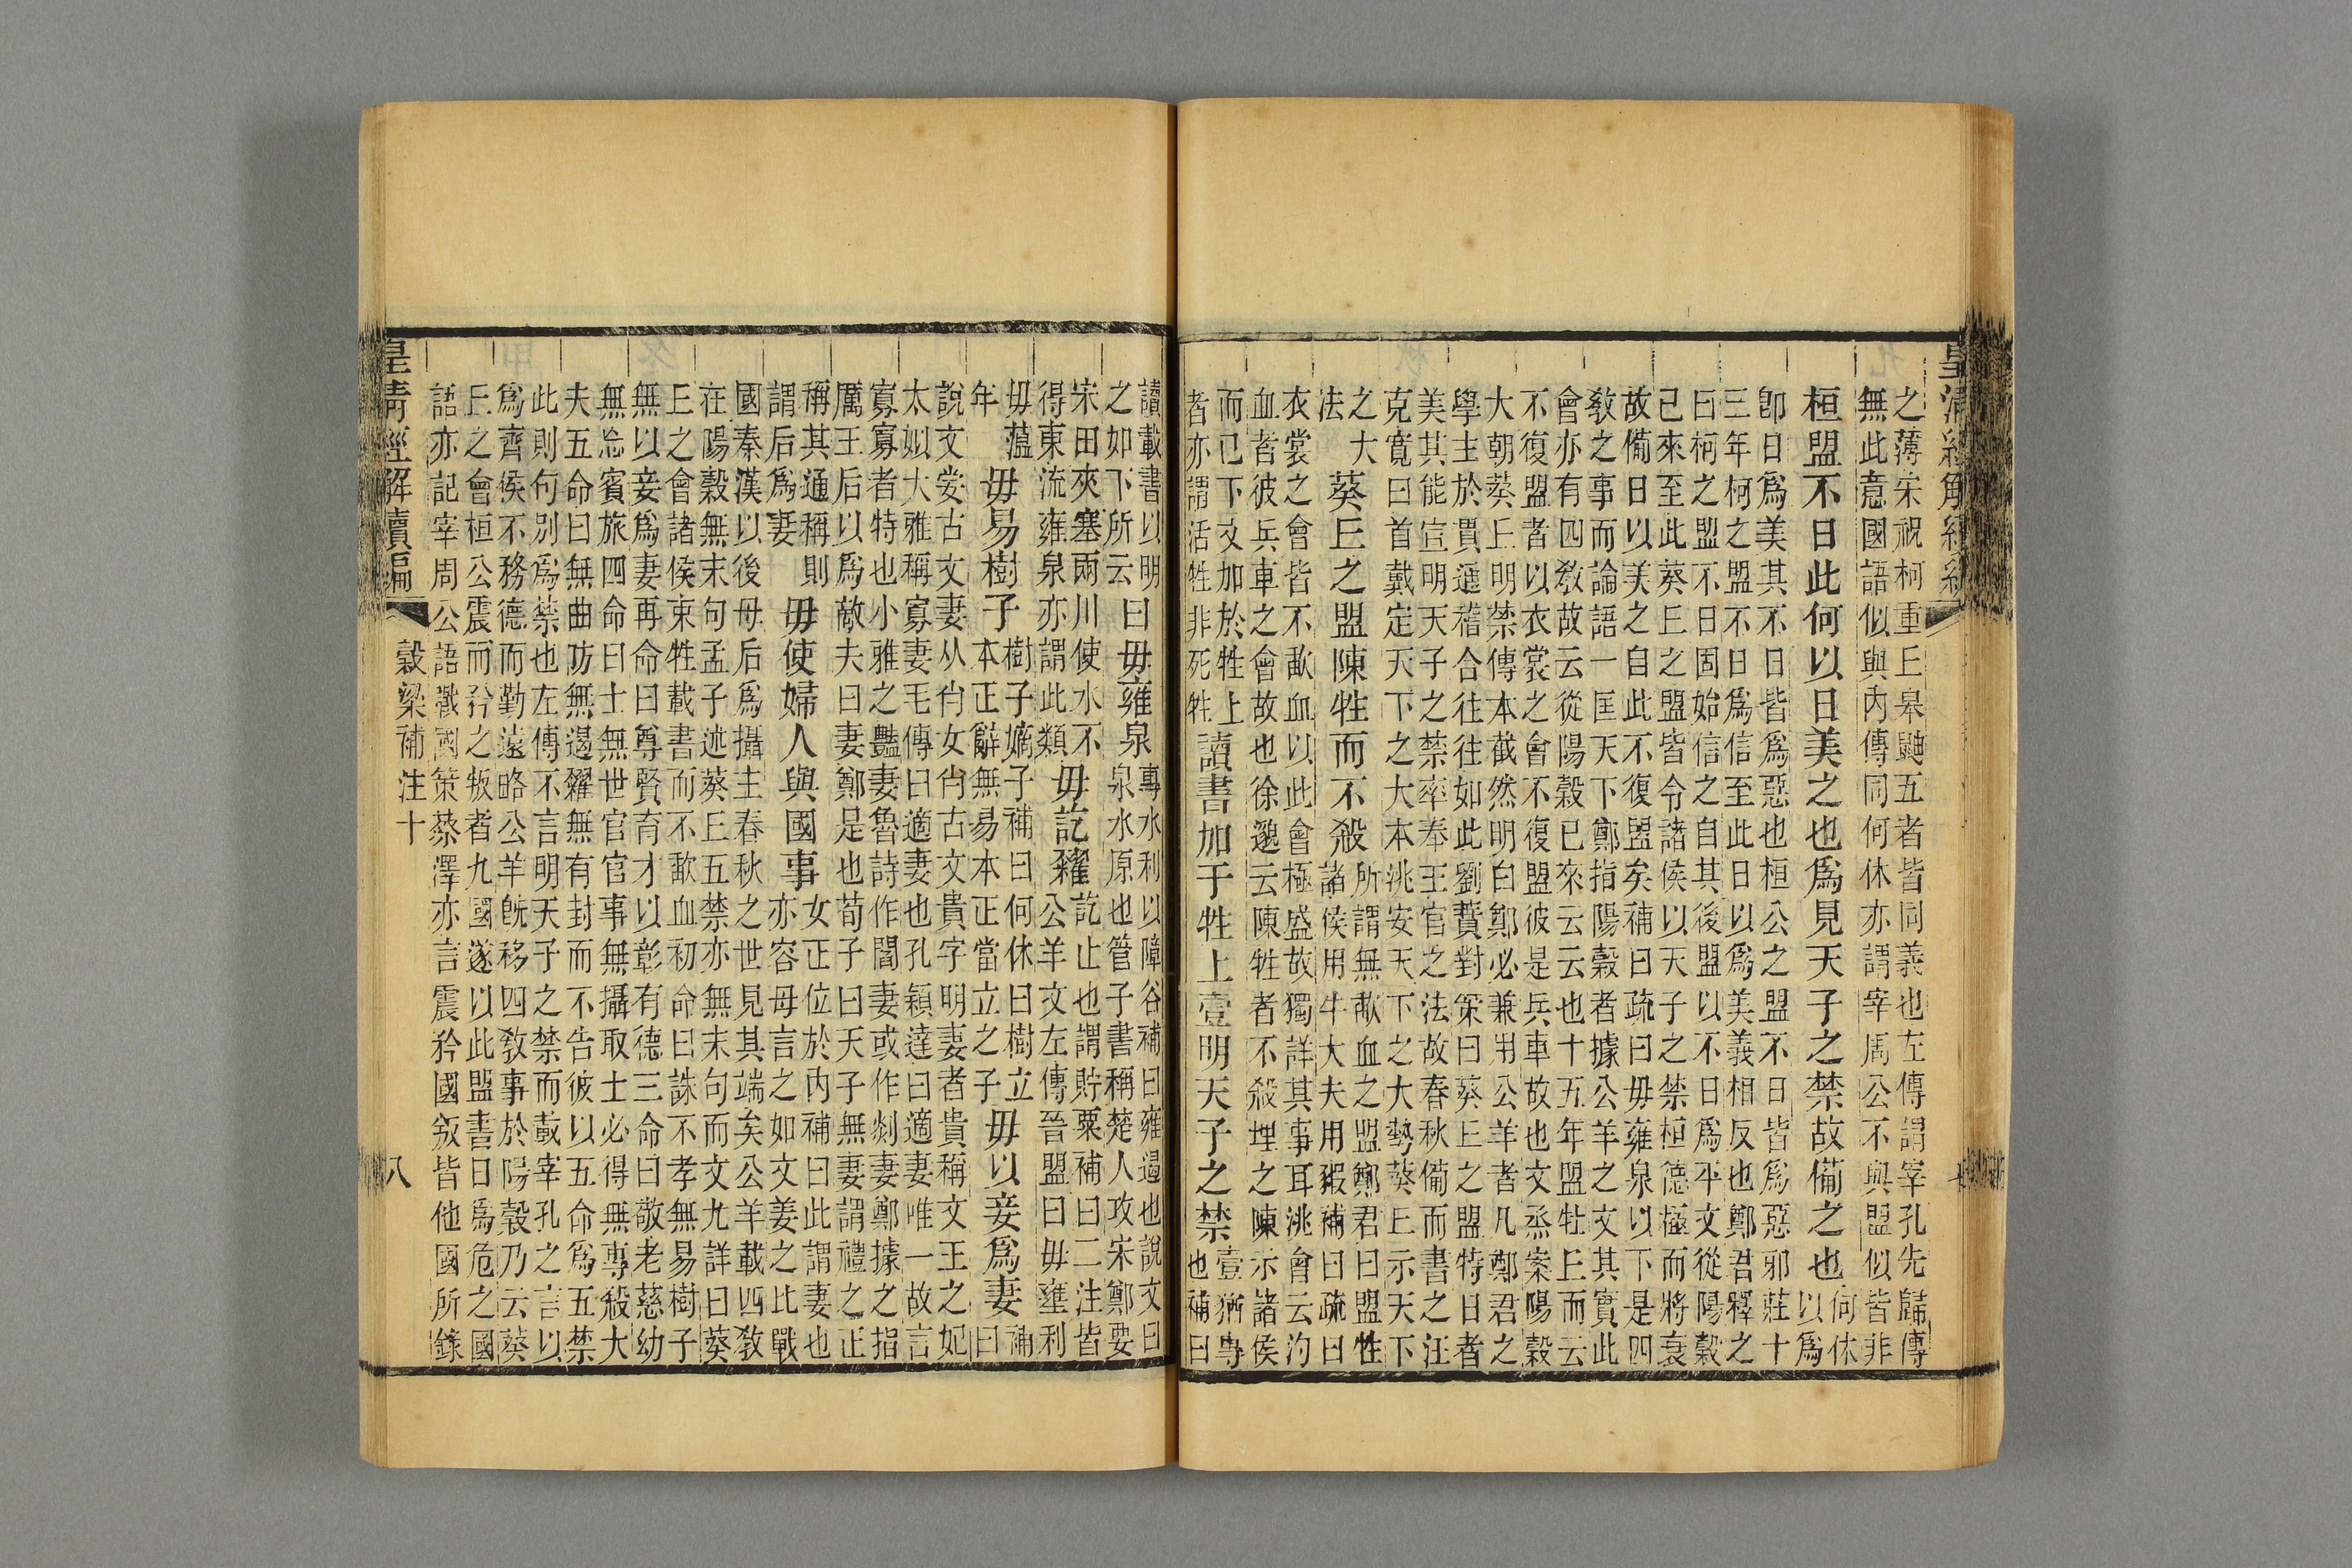 之薄宋祝柯重丘皋鼬五者皆同義也左傳謂宰孔先歸傳
無此意國語似與內傳同何休亦謂宰周公不與盟似皆非
桓盟不日此何以日美之也爲見天子之禁故備之也何休
以爲
卽日爲美其不日皆爲惡也桓公之盟不日皆爲惡邪莊十
三年柯之盟不日爲信至此日以爲美義相反也鄭君釋之
曰柯之盟不日固始信之自其後盟以不日爲平文從陽穀
已來至此葵丘之盟皆令諸侯以天子之禁桓德極而將衰
故備日以美之自此不復盟矣補曰疏曰毋雍泉以下是四
敎之事而論語一匡天下鄭指陽穀者據公羊之文其實此
會亦有四敎故云從陽穀已來云云也十五年盟牡丘而云
不復盟者以衣裳之會不復盟彼是兵車故也文烝案陽穀
大朝葵丘明禁傳本截然明白鄭必兼用公羊者凡鄭君之
學主於貫通稽合往往如此劉蕡對策曰葵丘之盟特日者
美其能宣明天子之禁率奉王官之法故春秋備而書之汪
克寬曰首戴定天下之大本洮安天下之大勢葵丘示天下
之大
法
葵丘之盟陳牲而不殺所謂無歃血之盟鄭君曰盟牲
諸侯用牛大夫用豭補曰疏曰
衣裳之會皆不歃血以此會極盛故獨詳其事耳洮會云汋
血者彼兵車之會故也徐邈云陳牲者不殺埋之陳示諸侯
而已下文加於牲上
者亦謂活牲非死牲
讀書加于牲上壹明天子之禁壹猶專
也補曰
讀載書以明
之如下所云
曰毋雍泉專水利以障谷補曰雍遏也說文曰
泉水原也管子書稱楚人攻宋鄭要
宋田夾塞兩川使水不
得東流雍泉亦謂此類
毋訖糴訖止也謂貯粟補曰二注皆
公羊文左傳晉盟曰毋壅利
毋薀
年
毋易樹子樹子嫡子補曰何休曰樹立
本正辭無易本正當立之子
毋以妾爲妻補
曰
說文妾古文妻从肖女肖古文貴字明妻者貴稱文王之妃
太姒大雅稱寡妻毛傳曰適妻也孔穎達曰適妻唯一故言
寡寡者特也小雅之豔妻魯詩作閻妻或作剡妻鄭據之指
厲王后以爲敵夫曰妻鄭是也荀子曰天子無妻謂禮之正
稱其通稱則
謂后爲妻
毋使婦人與國事女正位於內補曰此謂妻也
亦容母言之如文姜之比戰
國秦漢以後母后爲攝主春秋之世見其端矣公羊載四敎
在陽穀無末句孟子述葵丘五禁亦無末句而文尤詳曰葵
丘之會諸侯束牲載書而不歃血初命曰誅不孝無易樹子
無以妾爲妻再命曰尊賢育才以彰有德三命曰敬老慈幼
無忘賓旅四命曰士無世官官事無攝取士必得無專殺大
夫五命曰無曲防無遏糴無有封而不告彼以五命爲五禁
此則句別爲禁也左傳不言明天子之禁而載宰孔之言以
爲齊侯不務德而勤遠略公羊旣移四敎事於陽穀乃云葵
丘之會桓公震而矜之叛者九國遂以此盟書日爲危之國
語亦記宰周公語戰國策蔡澤亦言震矜國叛皆他國所錄
皇淸經解續編
穀梁補注十
八